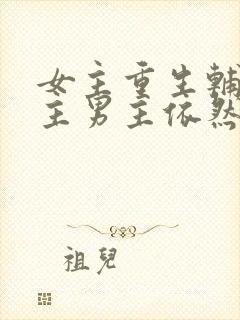 女主重生辅
主男主依然
祖兒